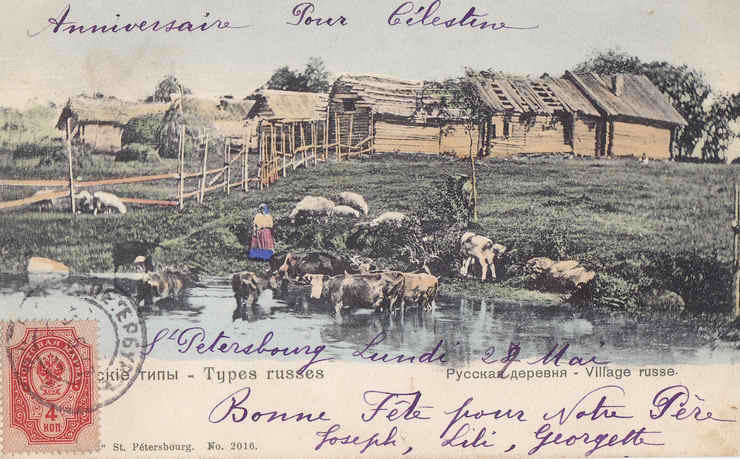 Anniversaire Pour Célestine
St Petersbourg Lundi 22 Mai
скіе типы - Types russes
Русская деревня - Village russe.
Bonne Fête pour Notre Père
Joseph, Lili, Georgette
ПОЧТОВАЯ МАРКА
4
КОП
4
St. Pétersbourg. No. 2016.